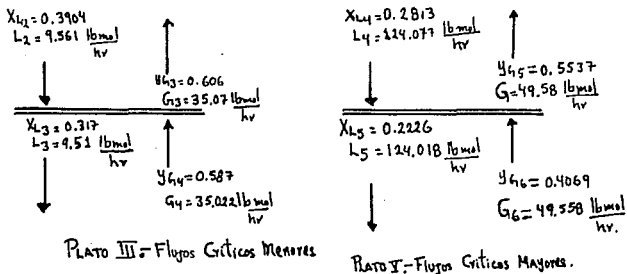 XL2=0.3904
L2=9.561 lbmol/hr
yG3=0.606
G3=35.07 lbmol/hr
XL3=0.317
L3=9.51 lbmol/hr
yG4=0.587
G4=35.022 lbmol/hr
PLATO III.- Flujos Críticos Menores
XL4=0.2813
L4=124.077 lbmol/hr
yG5=0.5537
G=49.58 lbmol/hr
XL5=0.2226
L5=124.018 lbmol/hr
yG6=0.4069
G6=49.558 lbmol/hr.
PLATO V.- Flujos Críticos Mayores.